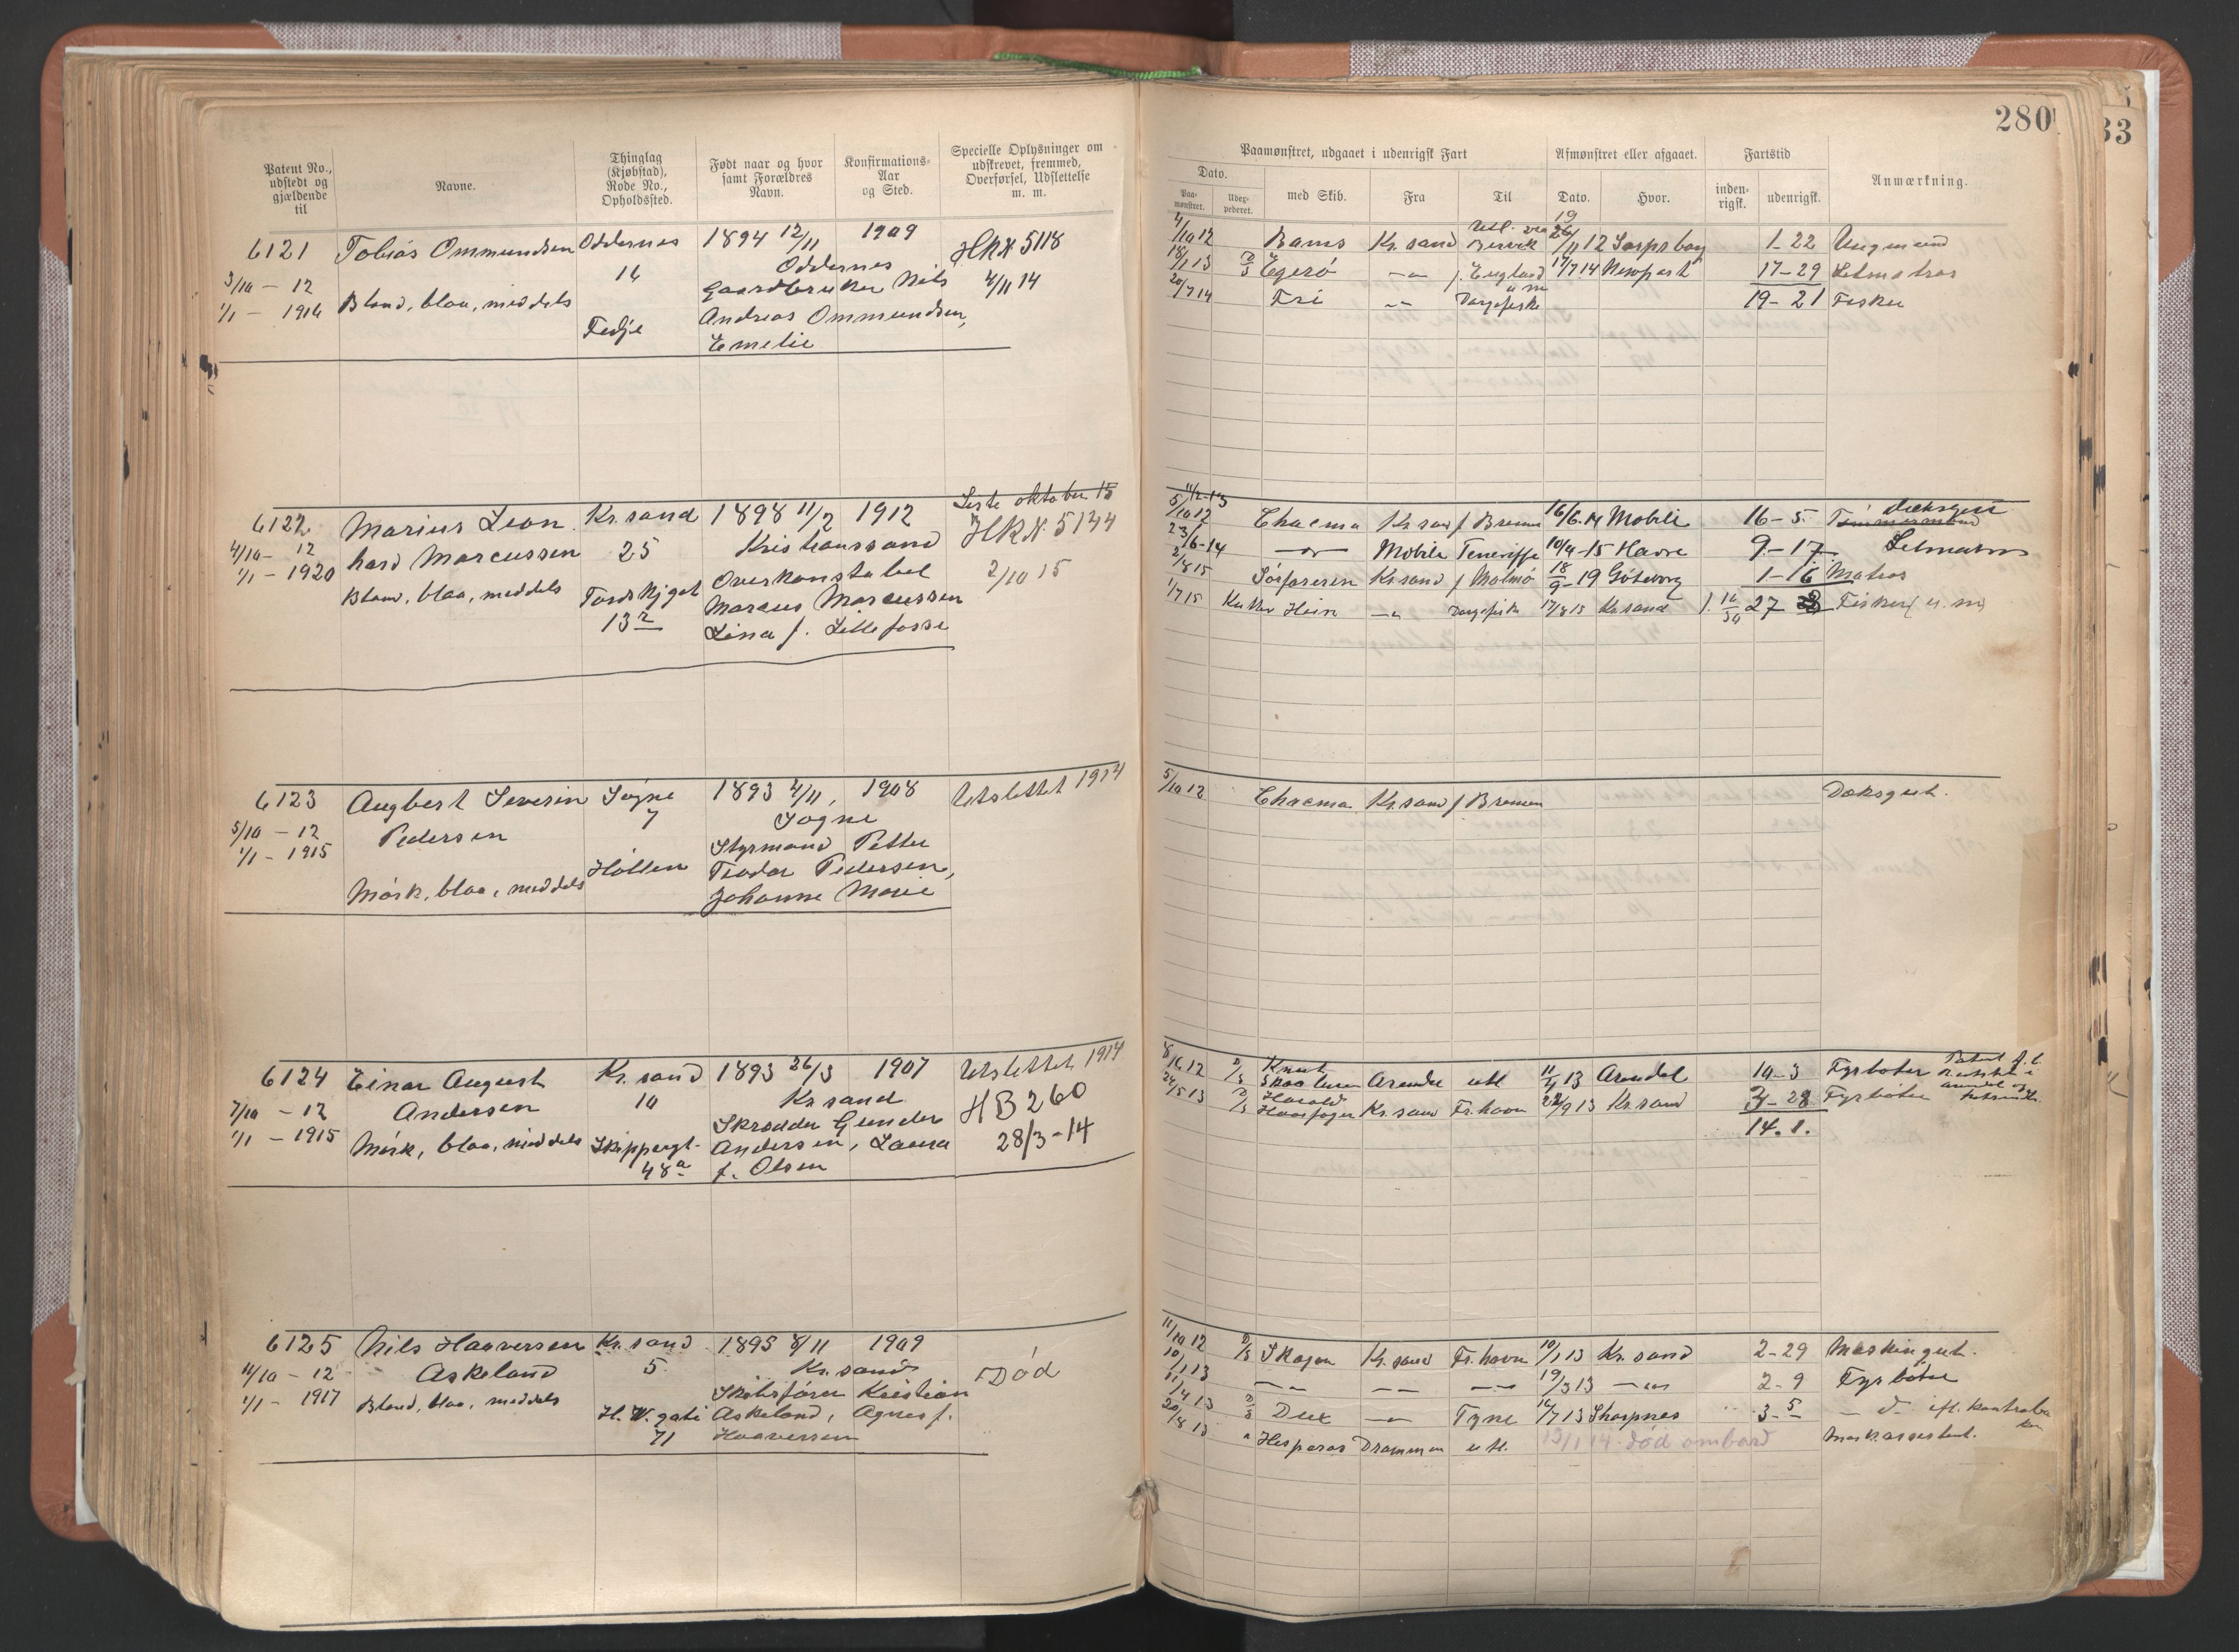 280
33
Patent No., udstedt og gjældende til
Navne.
Thinglag (Kjøbstad), Rode No., Opholdssted.
Født naar og hvor samt Forældres Navn.
Konfirmations-Aar og Sted.
Specielle Oplysninger om udskrevet, fremmed, Overførsel, Udslettelse m. m.
Paamønstret, udgaaet i udenrigsk Fart
Dato.
Paa-mønstret.
Udex-pederet.
med Skib.
Fra
Til
Afmønstret eller afgaaet.
Dato.
Hvor.
Fartstid
inden-rigsk.
udenrigsk.
Anmærkning.
6121 Tobias Ommundsen Oddernes 1894 12/11 1909 HRN 5118
3/10 - 12 16 Oddernes 4/11 14
1/1 - 1916 Blond, blaa, middels Gaardbruker Nils
Fedje Andreas Ommundsen,
Emelie
4/10 12 Bams Kr.sand 12 Sarpsborg 1-22 Ungmand
18/1 13 D/S Egerø -"- f. England 17/7 14 Newport 17-29 Letmatros
20/7 14 Fri -"- Dagsfiske 19-21 Fisker
6122 Marius Leon Kr.sand 1898 11/2 1912 Siste oktober 15
4/10 - 12 hard Marcussen 25 Kristianssand HRN. 5144
1/1 - 1920 Overkonstabel 2/10 15
Blond, blaa, middels Tordskjgt Marcus Marcussen
13 Lina f. Lillefosse
5/10 12 Chacma Kr.sand f Bremen 16/6. 14 Mobile 16-5. Dæksgut
23/6-14 -"- Mobile Teneriffe 10/4-15 Havre 9-17 Letmatros
2/8 15 Sørfareren Kr.sand f Malmö 18/9-19 Göteborg 1-16 Matros
1/7 15 Kutter Hein -"- Dagsfiske 17/8 15 Kr.sand 27 Fisker
6123 Augbert Severin Søgne 1893 4/11, 1908 Utslettet 1914
5/10 - 12 Pedersen 7 Søgne
1/1 - 1915 Styrmand Petter
Høllen Teodor Pedersen,
Mørk, blaa, middels Johanne Marie
5/10 12 Chacma Kr.sand f Bremen Dæksgut.
6124 Einar August Kr.sand 1893 26/3 1907 Utslettet 1914
7/10 - 12 Andersen 10 Kr.sand HB 260
1/1 - 1915 Skrædder Gunder 28/3-14
Mørk, blaa, middels Skippergt. Andersen, Laura
48a f. Olsen
8/10 12 D/S Knut Skaaluren Arendal utl 13 Arendal 10-3 Fyrbøter
24/5 13 D/S Harald Haarfager Kr.sand Fr.havn 22/9 13 Kr.sand 3-28 Fyrbøter
14. 1.
6125 Nils Haaversen Kr.sand 1895 8/11 1909
11/10 - 12 Askeland 5 Kr.sand Død
1/1 - 1917 Skibsfører Kristian
Blond, blaa, middels H.W.gate Askeland, Agnes f.
71 Haaversen
11/10 12 D/S Skagen Kr.sand Fr.havn 10/1 13 Kr.sand 2-29 Maskingut.
10/1 13 -"- -"- -"- 19/3 13 -"- 2-9 Fyrbøter
11/4 13 D/S Dux -"- Tyne 16/7 13 Skarpnes 3-5 - d - ifl. kontrabok
20/8 13 " Hesperos Drammen utl. 13/1 14 død ombord Maskassistent.